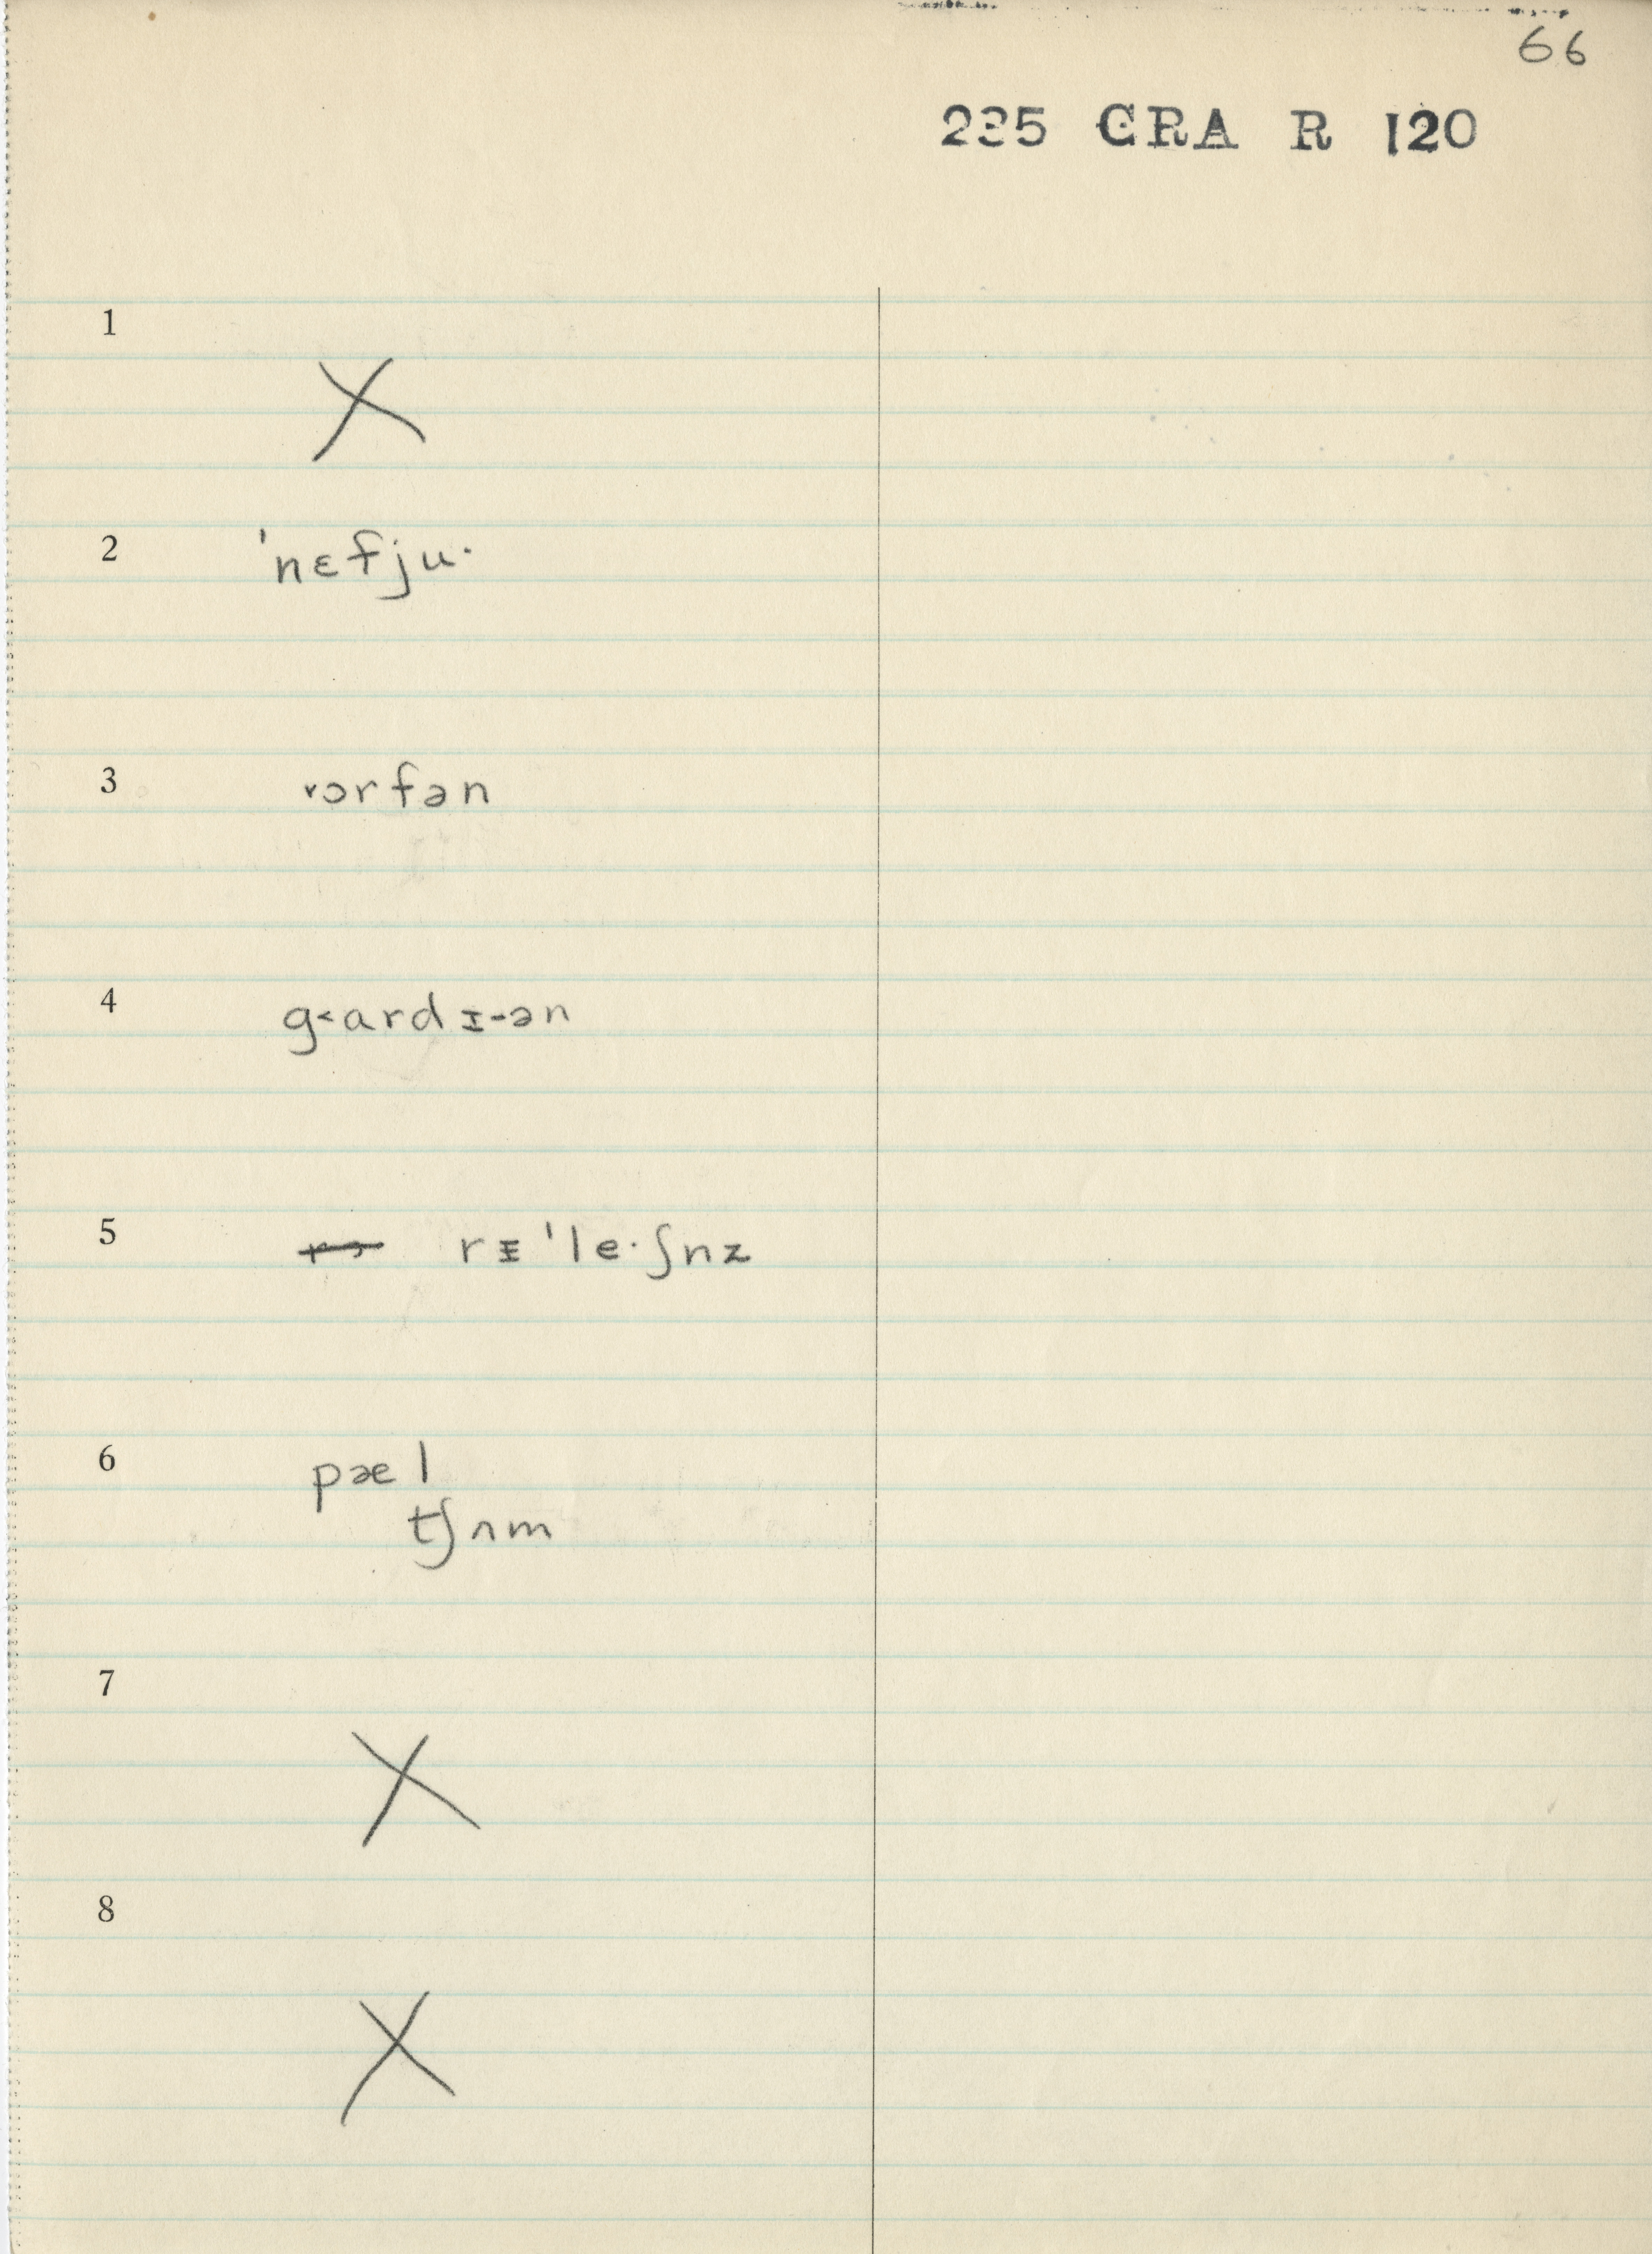 66
235 GRA R 120
1
X
2 ˈnɛfju·
3 ˅ɔrfən
4 g˂ardɪ-ən
5 rɪˈle·ʃnz
6 pæl
tʃʌm
7
X
8
X